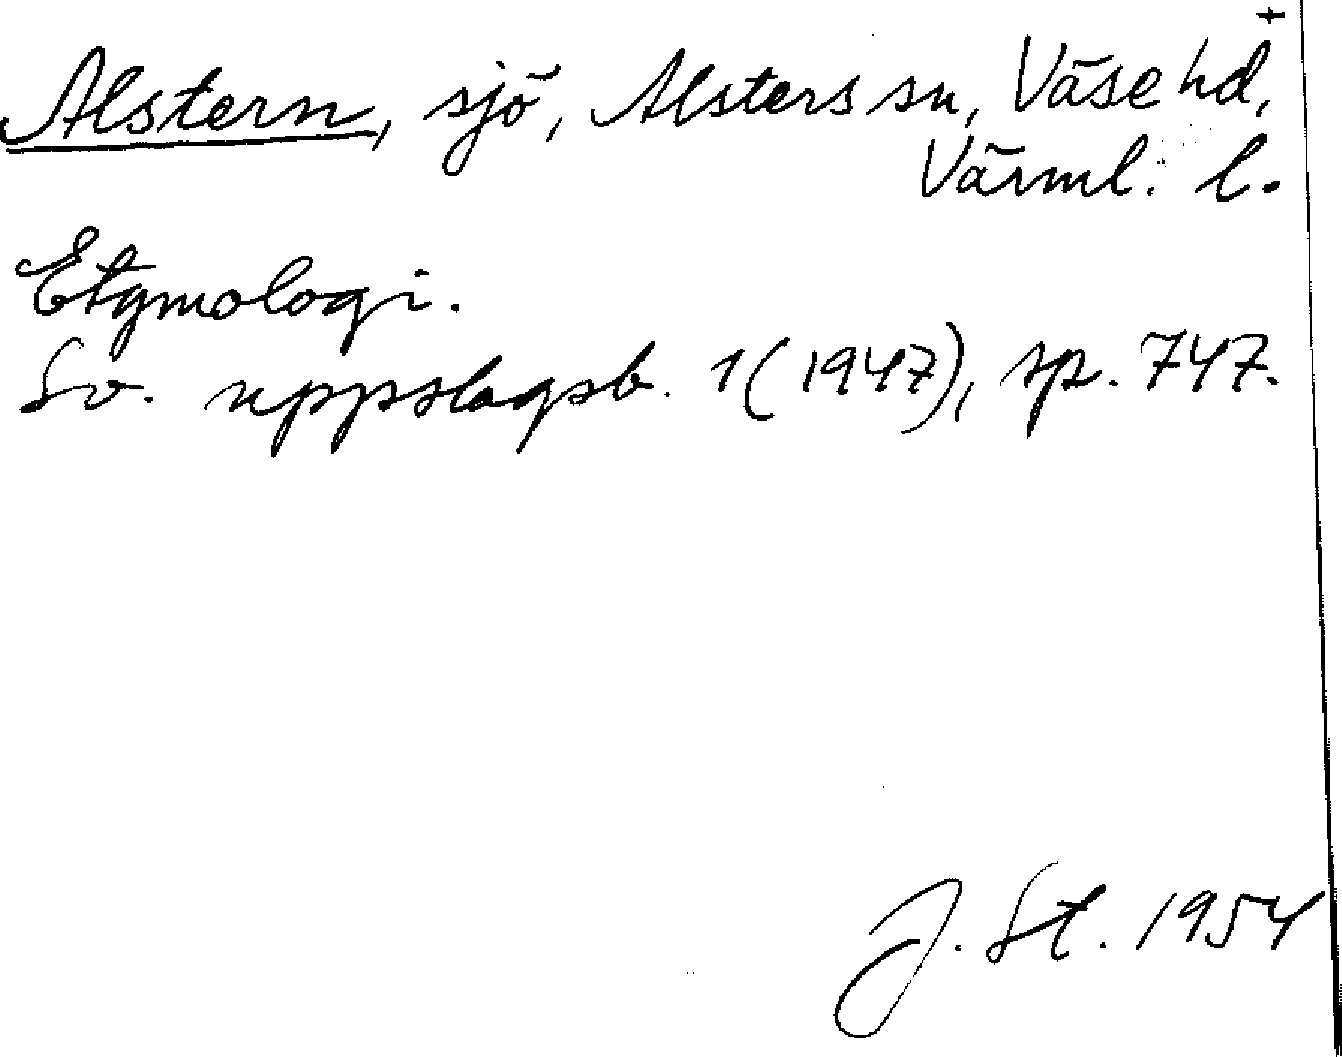 +
Alstern, sjö, Alsters sn, Väse hd,
Värml. l.
Etymologi.
Sv. uppslagsb. 1(1947), sp. 747.
J. St. 1954